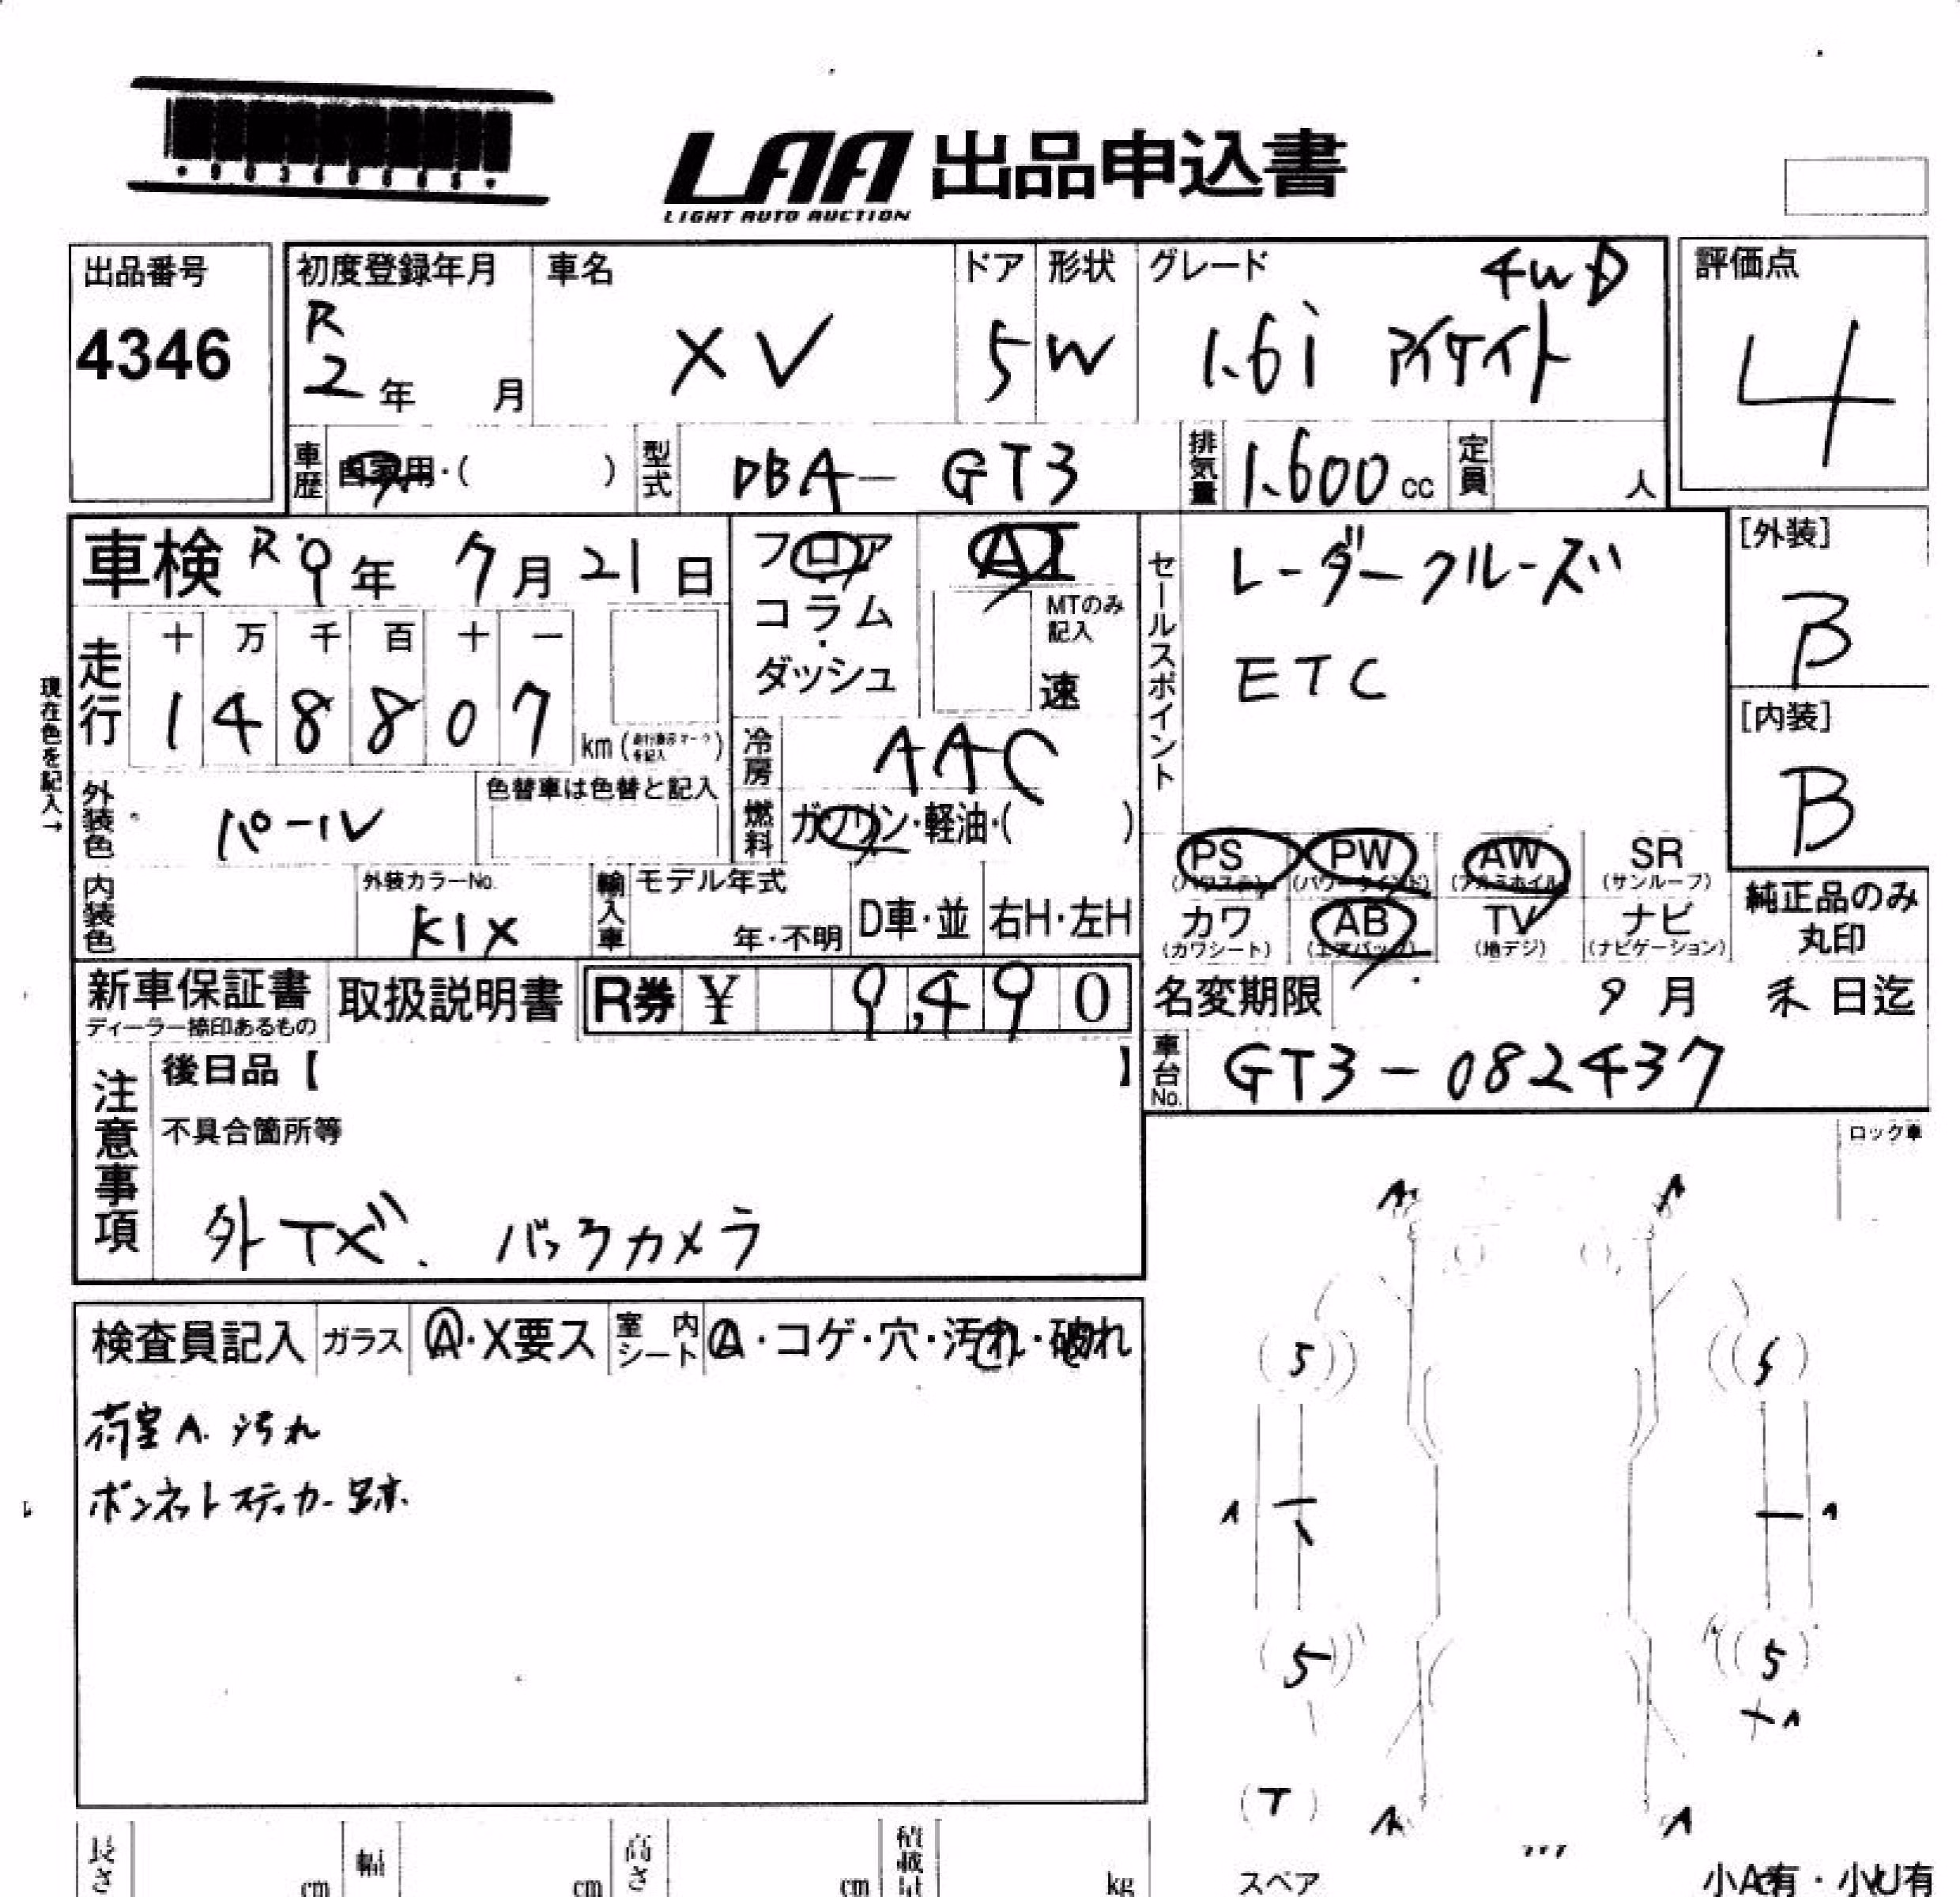 LAA 出品申込書
LIGHT AUTO AUCTION
出品番号
4346
初度登録年月
R
2 年 月
車名
XV
ドア
5
形状
W
グレード 4WD
1.6i アイサイト
評価点
4
車歴
自家用・( )
型式
DBA-GT3
排気量
1.600 cc
定員
人
車検 R9年 7月 21日
走行
十 万 千 百 十 一
1 4 8 8 0 7 km
現在色を記入→
外装色
パール
色替車は色替と記入
内装色
外装カラーNo.
K1X
輸入車
モデル年式
年・不明
D車・並
右H・左H
フロア
コラム
ダッシュ
AT
MTのみ
記入
速
冷房
AAC
燃料
ガソリン・軽油・( )
セールスポイント
レーダークルーズ
ETC
[外装]
B
[内装]
B
PS PW AW SR
(パワステ) (パワーウインド) (アルミホイル) (サンルーフ)
カワ AB TV ナビ
(カワシート) (エアバッグ) (地デジ) (ナビゲーション)
純正品のみ
丸印
新車保証書
ディーラー捺印あるもの
取扱説明書
R券 ¥ 9,490
名変期限 9月 末日迄
車台No.
GT3-082437
注意事項
後日品【 】
不具合箇所等
外TV. バックカメラ
ロック車
検査員記入 ガラス A・X要ス 室内シート A・コゲ・穴・汚れ・破れ
荷室A. 汚れ
ボンネットステッカー跡.
A A
5 5
A A
5 5
A
(T)
A A
長さ cm 幅 cm 高さ cm kg
スペア
小A有・小U有